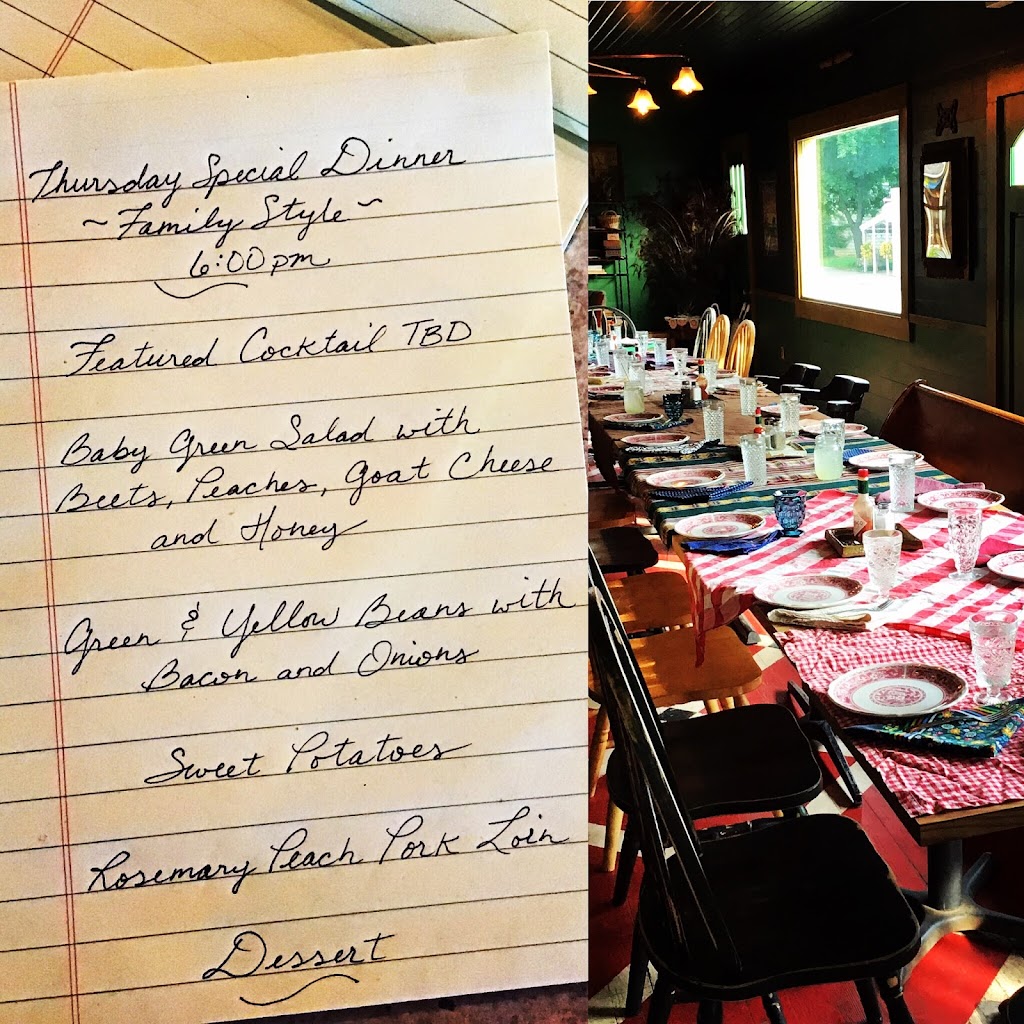 Thursday Special Dinner
~ Family Style ~
6:00 pm
Featured Cocktail TBD
Baby Green Salad with
Beets, Peaches, Goat Cheese
and Honey
Green & Yellow Beans with
Bacon and Onions
Sweet Potatoes
Rosemary Peach Pork Loin
Dessert